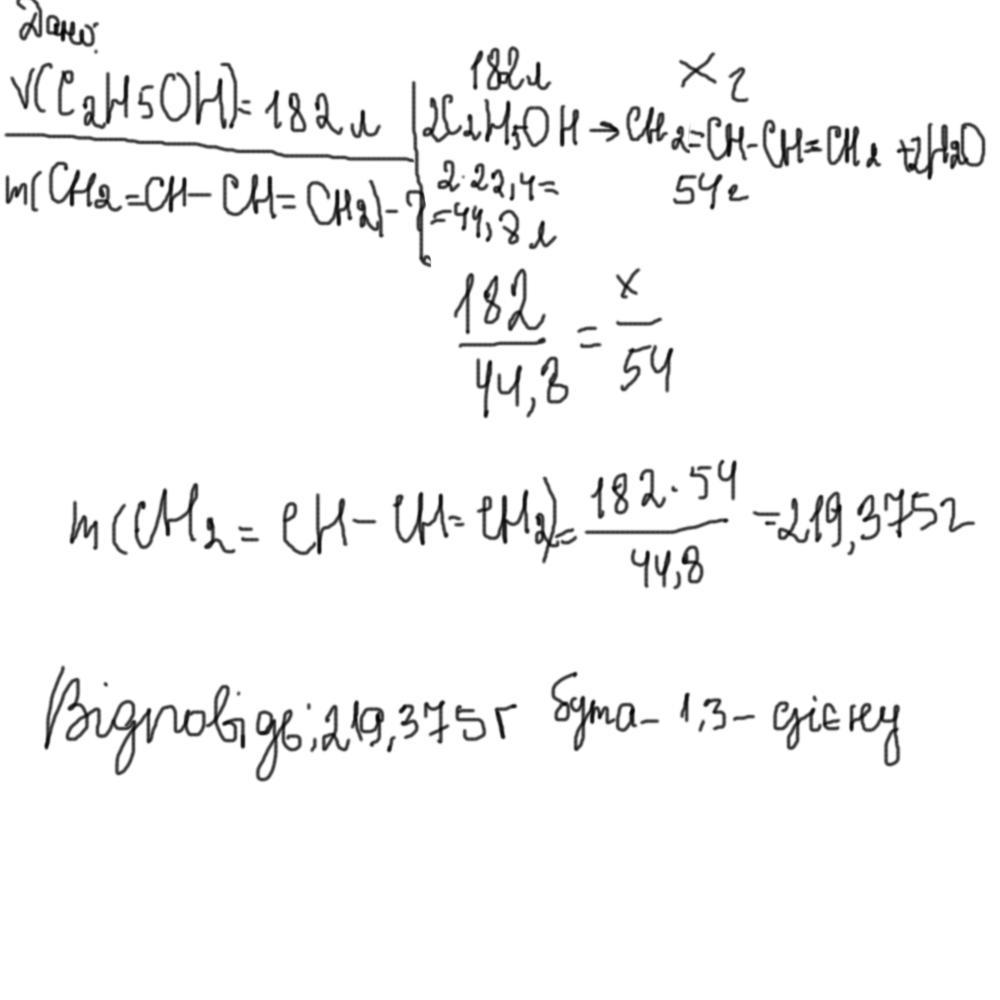 Дано:
V(C2H5OH)=182л
m(CH2=CH-CH=CH2)-?
182л x г
2C2H5OH→CH2=CH-CH=CH2+2H2O
2·22,4= 54г
=44,8л
182/44,8=x/54
m(CH2=CH-CH=CH2)=182·54/44,8=219,375г
Відповідь:219,375г бута-1,3-дієну